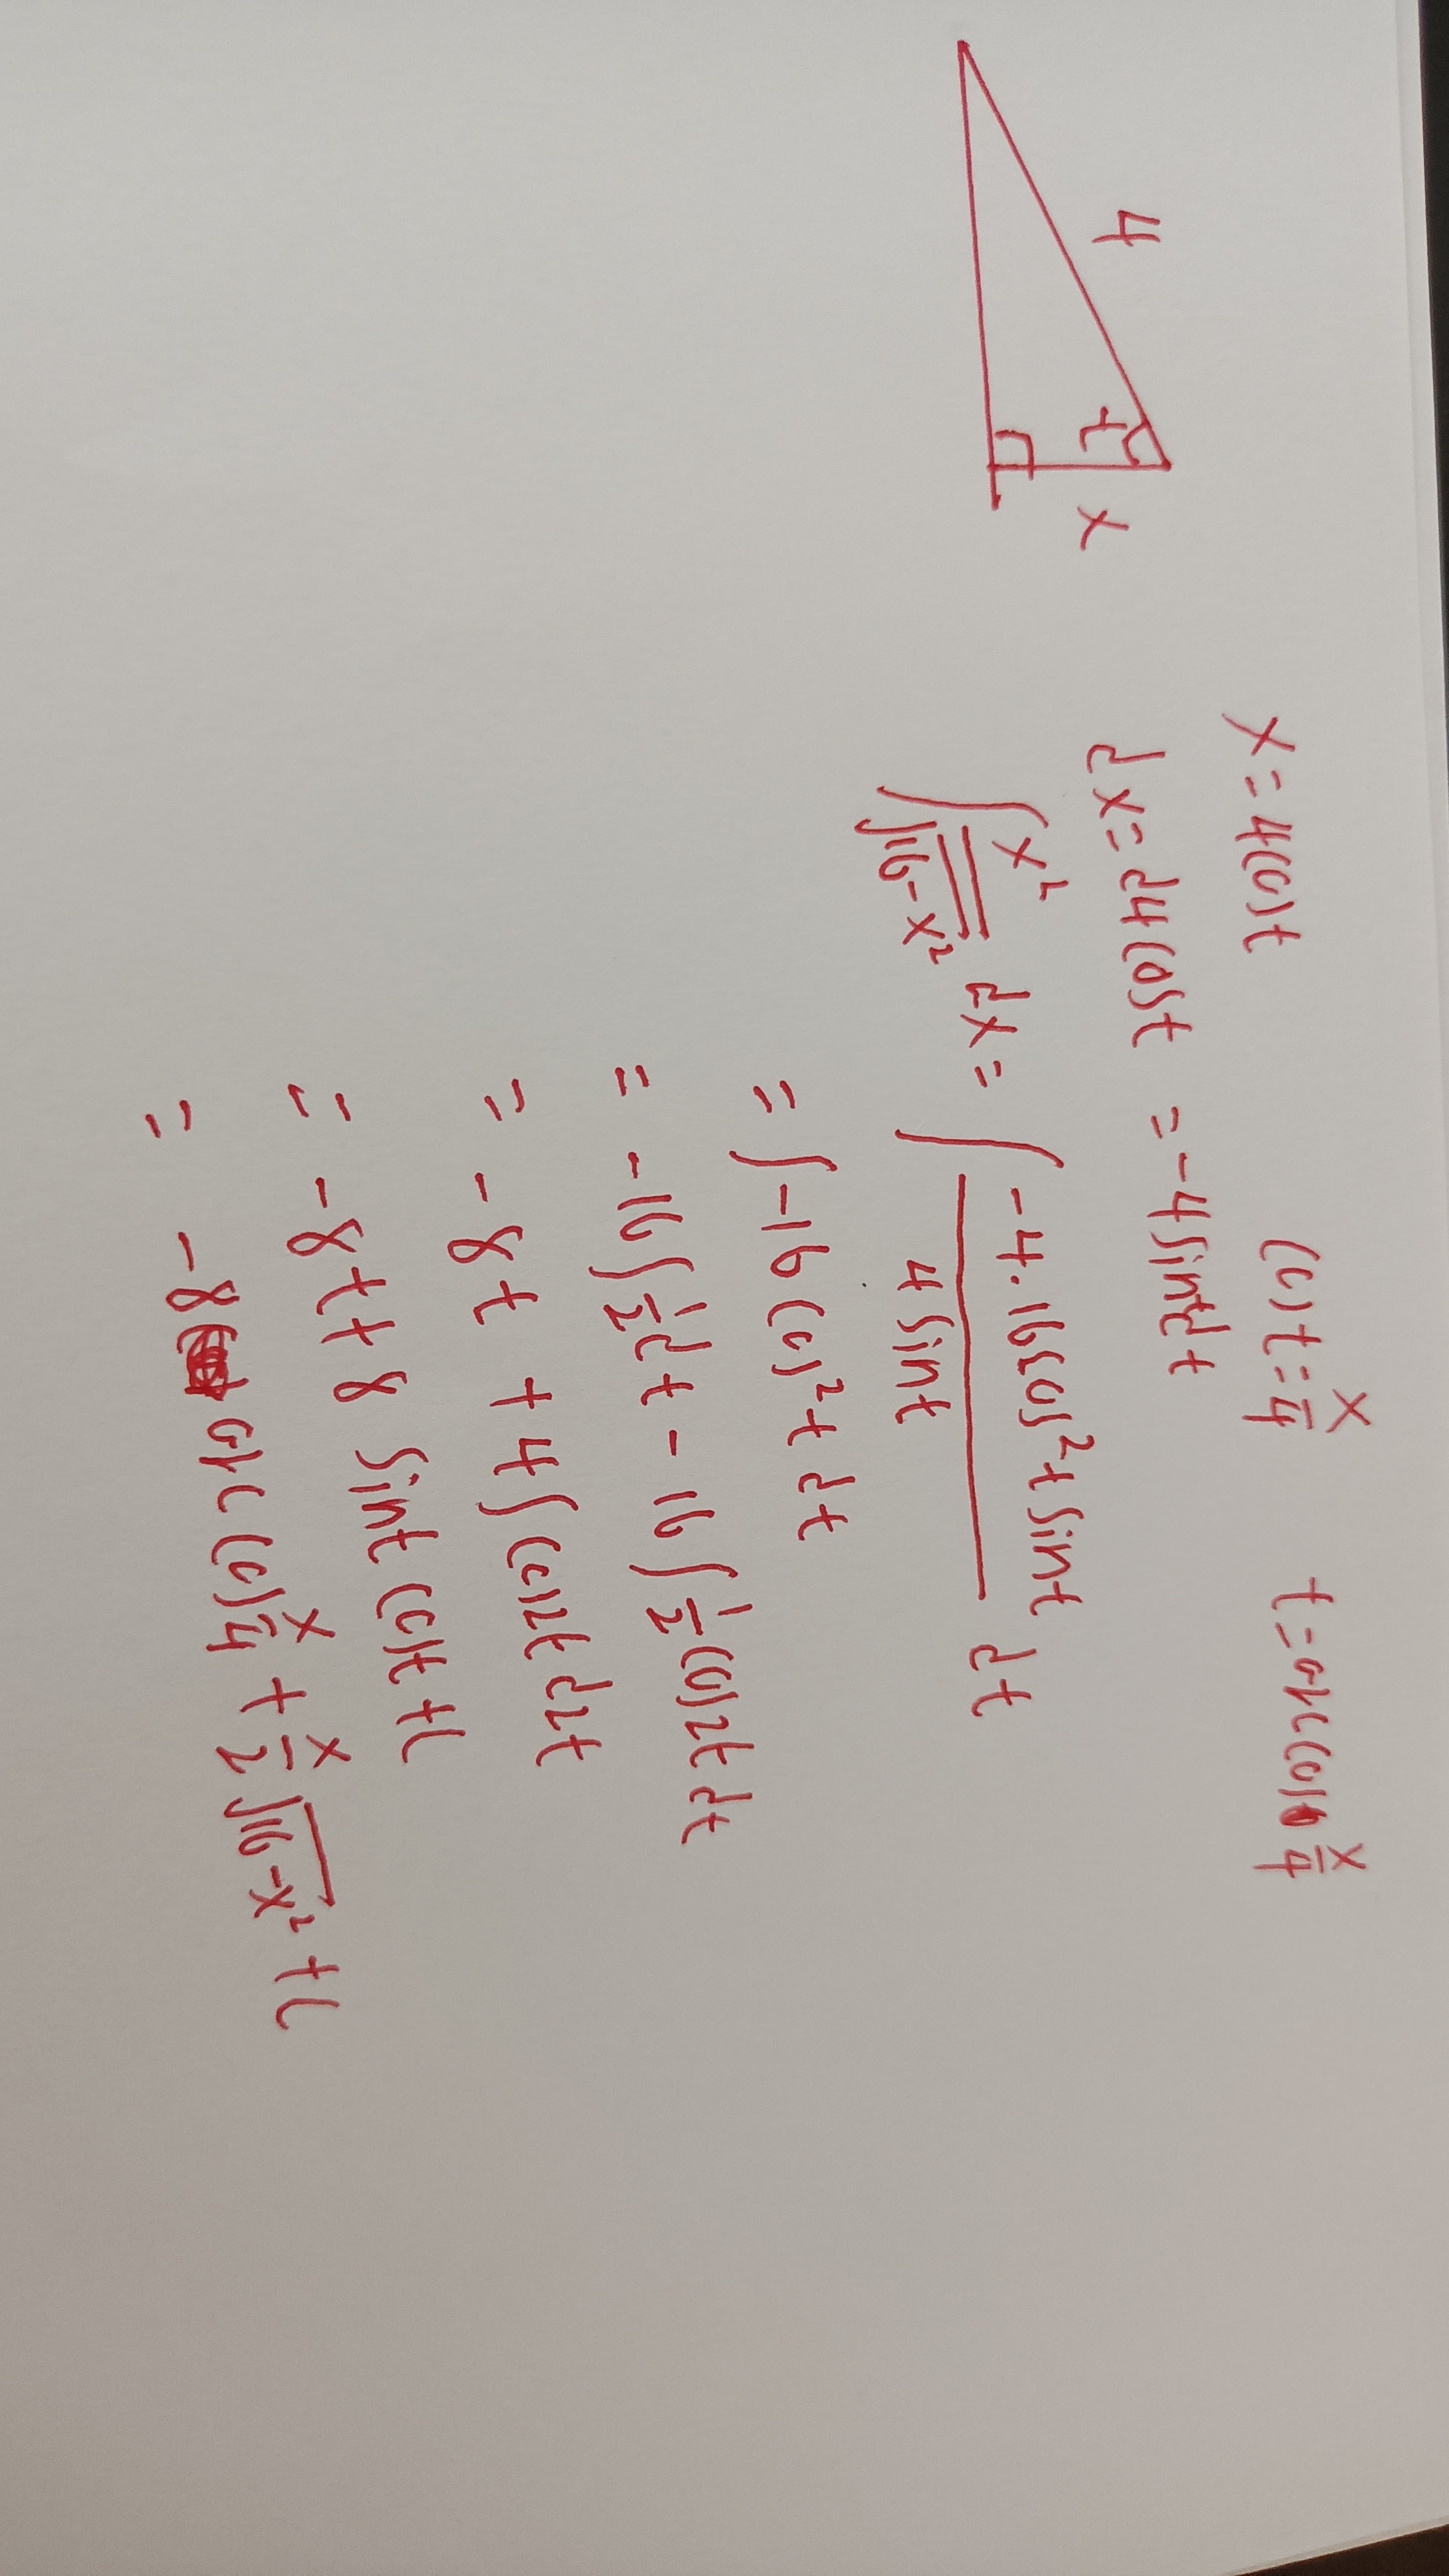 4
t
x
x = 4cost cost = x/4 t = arccos x/4
dx = d4cost = -4sintdt
∫ x²/√16-x² dx = ∫ -4·16cos²t sint / 4sint dt
= ∫ -16 cos²t dt
= -16∫ 1/2 dt - 16∫ 1/2 cos2t dt
= -8t + 4∫ cos2t d2t
= -8t + 8 sint cost + C
= -8 arccos x/4 + x/2 √16-x² + C